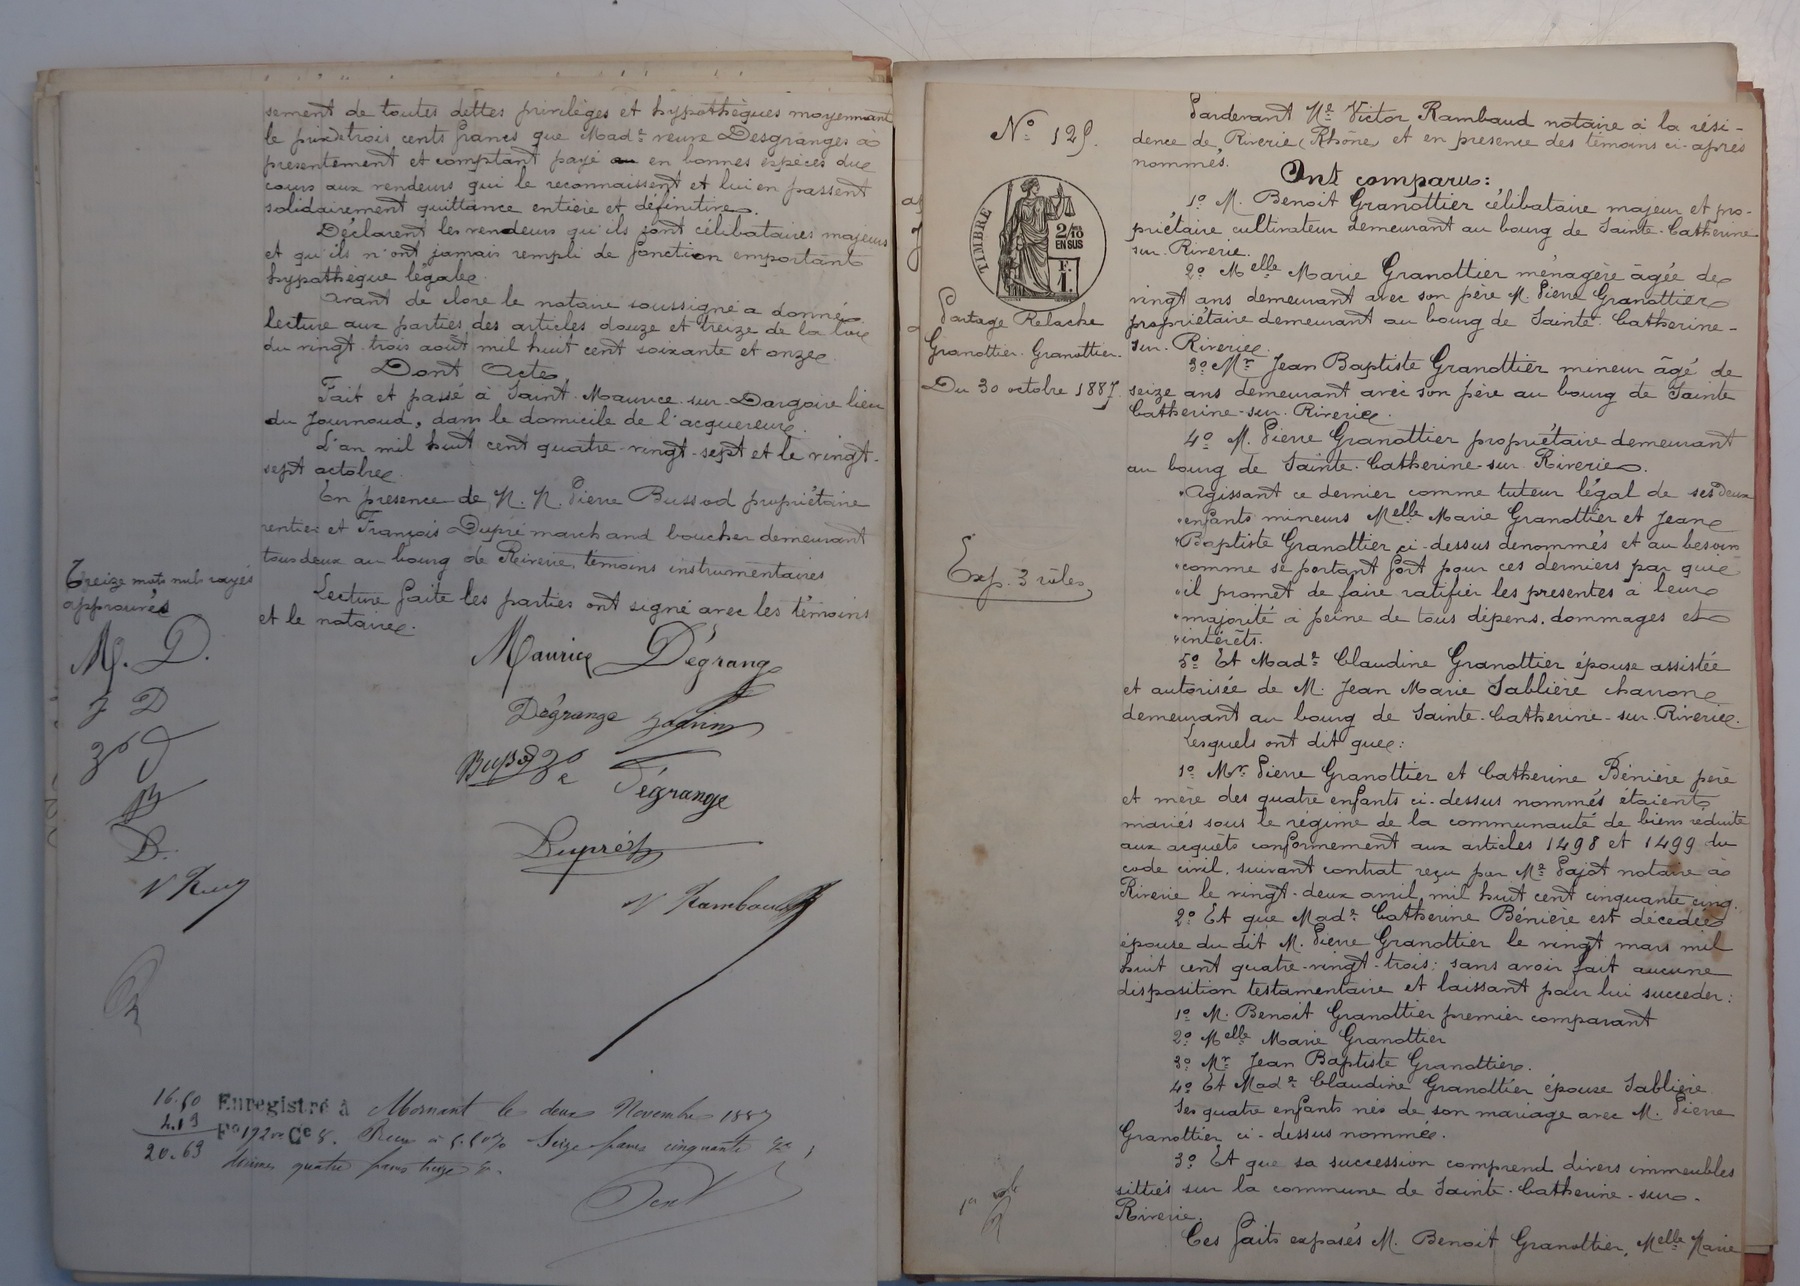 sement de toutes dettes privilèges et hypothèques moyennant
le prix de trois cents francs que Madᵉ veuve Desgranges a
présentement et comptant payé en bonnes espèces du
cours aux vendeurs qui le reconnaissent et lui en passent
solidairement quittance entière et définitive.
Déclarent les vendeurs qu'ils sont célibataires majeurs
et qu'ils n'ont jamais rempli de fonction emportant
hypothèque légale.
Avant de clore le notaire soussigné a donné
lecture aux parties des articles douze et treize de la loi
du vingt-trois août mil huit cent soixante et onze.
Dont Acte
Fait et passé à Saint-Maurice-sur-Dargoire lieu
du Journoud, dans le domicile de l'acquereur.
L'an mil huit cent quatre-vingt-sept et le vingt-
sept octobre.
En présence de M. M. Pierre Bussod propriétaire
rentier et François Dupré marchand boucher demeurant
tous deux au bourg de Riverie, témoins instrumentaires
Lecture faite les parties ont signé avec les témoins
et le notaire.
Treize mots nuls rayés
approuvés
M. D.
J D
B
D.
Maurice Dégrange
Dégrange
Dégrange
Dupré
V Rambaud
16.50
4.13
20.63
Enregistré à Mornant le deux Novembre 1887
Fº 192 vº Cᵉ 8. Reçu à 5.50% Seize francs cinquante
décimes quatre francs treize c.
Nº 129.
TIMBRE
2/10 EN SUS
F. 1.
Partage Relache
Granottier-Granottier.
Du 30 octobre 1887.
Exp. 3 rôles
1er rôle
Pardevant Mᵉ Victor Rambaud notaire à la rési-
dence de Riverie (Rhône) et en présence des témoins ci-après
nommés.
Ont comparu:
1º M. Benoit Granottier célibataire majeur et pro-
priétaire cultivateur demeurant au bourg de Sainte-Catherine
sur-Riverie.
2º Melle Marie Granottier ménagère âgée de
vingt ans demeurant avec son père M. Pierre Granottier
propriétaire demeurant au bourg de Sainte-Catherine-
sur-Riverie.
3º Mr Jean Baptiste Granottier mineur âgé de
seize ans demeurant avec son père au bourg de Sainte
Catherine-sur-Riverie.
4º M. Pierre Granottier propriétaire demeurant
au bourg de Sainte-Catherine-sur-Riverie.
"Agissant ce dernier comme tuteur légal de ses deux
"enfants mineurs Melle Marie Granottier et Jean
"Baptiste Granottier ci-dessus denommés et au besoin
"comme se portant fort pour ces derniers par qui
"il promet de faire ratifier les presentes à leur
"majorité à peine de tous dépens, dommages et
"intérêts.
5º Et Madᵉ Claudine Granottier épouse assistée
et autorisée de M. Jean Marie Sablière charron
demeurant au bourg de Sainte-Catherine-sur-Riverie.
Lesquels ont dit que:
1º Mr Pierre Granottier et Catherine Bénière père
et mère des quatre enfants ci-dessus nommés étaient
mariés sous le régime de la communauté de biens réduite
aux acquêts conformement aux articles 1498 et 1499 du
code civil, suivant contrat reçu par Mᵉ Pajot notaire à
Riverie le vingt-deux avril mil huit cent cinquante cinq.
2º Et que Madᵉ Catherine Bénière est décédée
épouse du dit M. Pierre Granottier le vingt mars mil
huit cent quatre-vingt-trois: sans avoir fait aucune
disposition testamentaire et laissant pour lui succeder:
1º M. Benoit Granottier premier comparant
2º Melle Marie Granottier
3º Mr Jean Baptiste Granottier.
4º Et Madᵉ Claudine Granottier épouse Sablière
Ses quatre enfants nés de son mariage avec M. Pierre
Granottier ci-dessus nommé.
3º Et que sa succession comprend divers immeubles
sittiés sur la commune de Sainte-Catherine-sur-
Riverie.
Ces faits exposés M. Benoit Granottier, Melle Marie